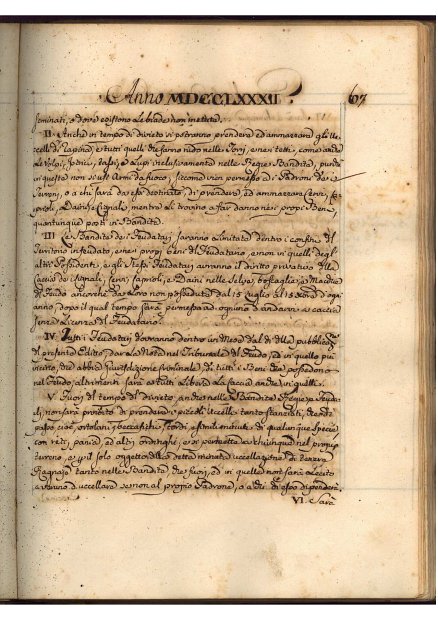 Anno MDCCLXXXII. 67
seminati, o dove esistono le biade non mietute.
II. Anche in tempo di divieto si potranno prendere ed ammazzare gli Uc-
celli di Rapina, e tutti quelli che fanno nido nelle Torri, e ne' tetti, come anche
le Volpi, Istrici, Tassi, e Lupi inclusivamente nelle Regie Bandite, purchè
in queste non si usi Armi da fuoco; siccome non permesso ai Padroni dei
Terreni, o a chi sarà da essi destinato, di prendere, ed ammazzare Cervi, Ca-
prioli, Daini e Cignali, mentre li trovino a far danno nei propri Beni,
quantunque posti in Bandita.
III. Le Bandite dei Feudatari saranno limitate dentro i confini del
Territorio infeudato, e nei propri beni del Feudatario, e non in quelli degli
altri Possidenti, e gli stessi Feudatari avranno il diritto privativo della
Caccia dei Cignali, Cervi, Caprioli, e Daini nelle Selve, boscaglie, e Macchie
del Feudo ancorchè da loro non possedute dal 15 Luglio al 15 d'ogni
anno, dopo il qual tempo sarà permesso ad ognuno d'andarvi a caccia
senza Licenza del Feudatario.
IV. Tutti i Feudatari dovranno dentro un Mese dal dì della pubblicaz.e
del presente Editto, dar la Nota nel Tribunale del Feudo, ed in quello più
vicino, che abbia giurisdizione criminale, di tutti i Beni che possedono
nel Feudo, altrimenti sarà a tutti libera la caccia anche in quelli.
V. Fuori del tempo del divieto, anche nelle Bandite Regie, e Feuda-
li, non sarà proibito di prendere i piccoli uccelli tanto stanziati, che di
passo cioè, ortolani, beccafichi, tordi, e simili minuti di qualunque specie
con reti, pania, ed altri ordinghi, e si permette a chiunque nel proprio
terreno, e pel solo oggetto della detta minuta uccellagione, di tenere
Ragnaje tanto nelle Bandite, che fuori, ed in quelle non sarà lecito
a veruno d'uccellare se non al proprio Padrone, o a chi da esso dipenderà.
VI. Sarà